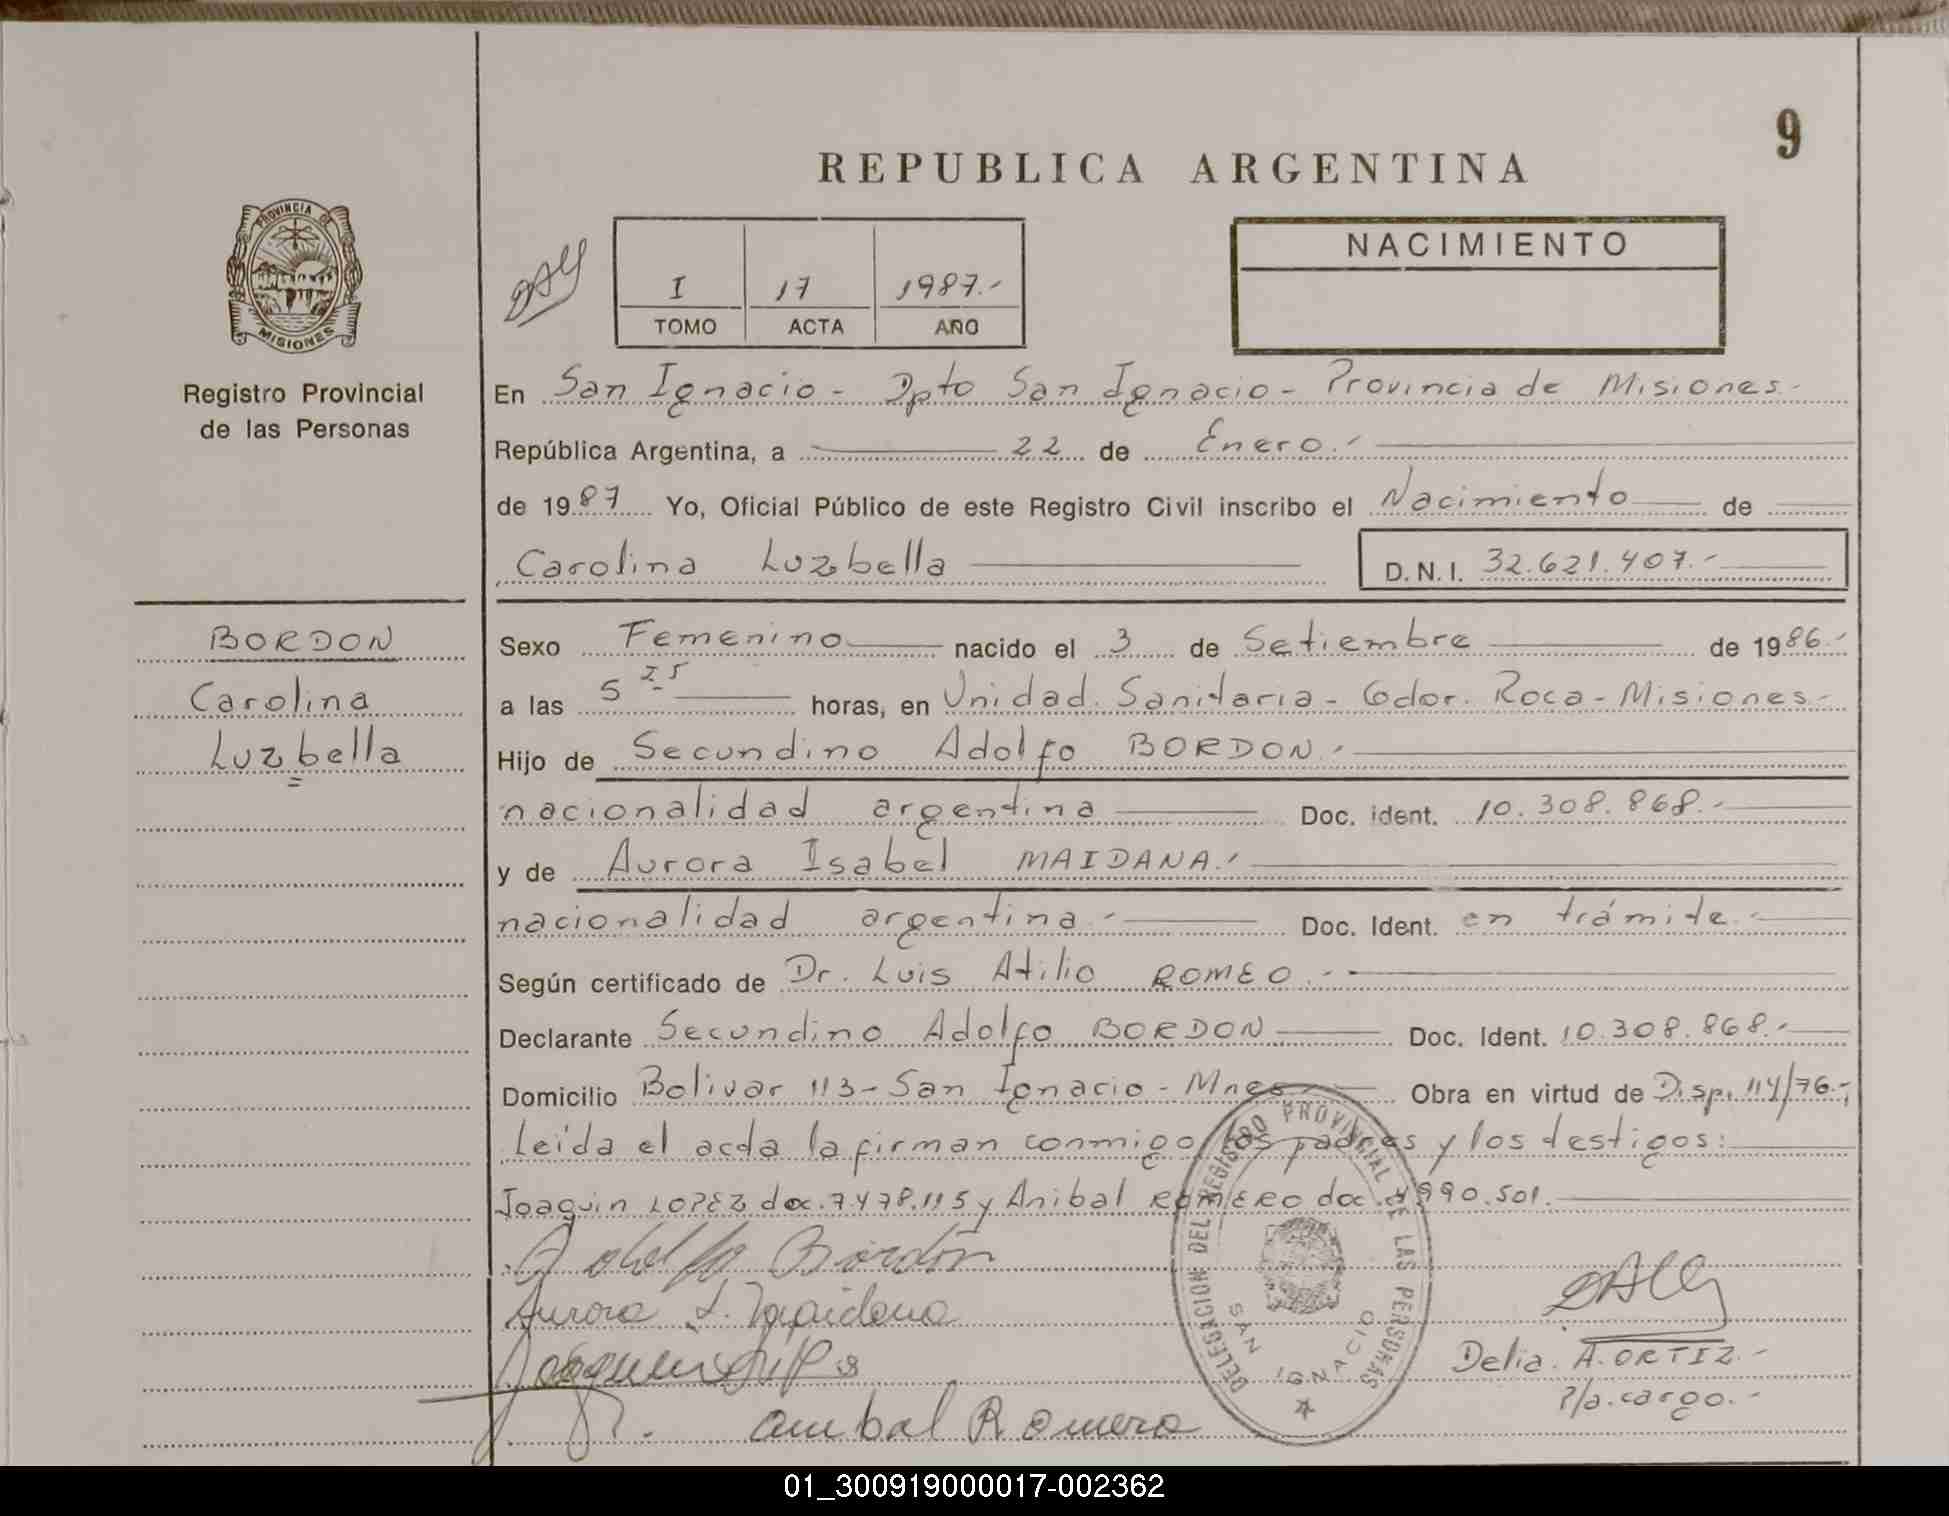 9
REPUBLICA ARGENTINA
PROVINCIA DE
MISIONES
Registro Provincial
de las Personas
I 17 1987.-
TOMO ACTA AÑO
NACIMIENTO
En San Ignacio - Dpto San Ignacio - Provincia de Misiones.-
República Argentina, a 22 de Enero.-
de 1987 Yo, Oficial Público de este Registro Civil inscribo el Nacimiento de
Carolina Luzbella D.N.I. 32.621.407.-
BORDON
Carolina
Luzbella
Sexo Femenino nacido el 3 de Setiembre de 1986.-
a las 5 25 horas, en Unidad Sanitaria - Gdor. Roca - Misiones.-
Hijo de Secundino Adolfo BORDON.-
nacionalidad argentina Doc. ident. 10.308.868.-
y de Aurora Isabel MAIDANA.-
nacionalidad argentina.- Doc. Ident. en trámite.-
Según certificado de Dr. Luis Atilio ROMEO.-
Declarante Secundino Adolfo BORDON Doc. Ident. 10.308.868.-
Domicilio Bolivar 113 - San Ignacio - Mnes.- Obra en virtud de Disp. 114/76.-,
Leída el acta la firman conmigo los padres y los testigos:
Joaquin LOPEZ doc. 7.478.115 y Anibal ROMERO doc. 990.501.
Adolfo Bordón
Aurora I. Maidana
Anibal Romero
DELEGACION DEL REGISTRO PROVINCIAL DE LAS PERSONAS
SAN IGNACIO
Delia. A. ORTIZ.-
P/a. cargo.-
01_300919000017-002362